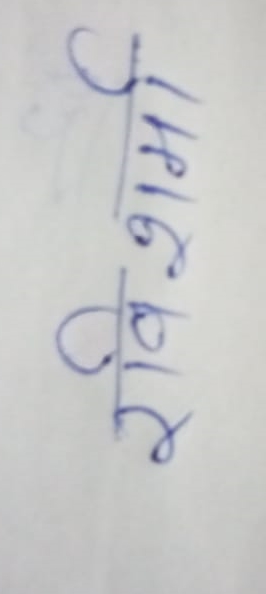 रवि शर्मा